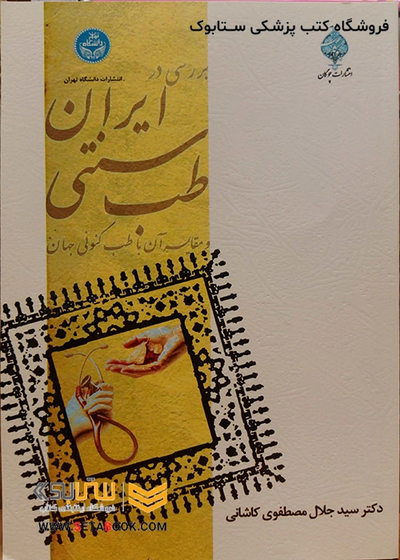 فروشگاه کتب پزشکی ستابوک
انتشارات چوگان
انتشارات دانشگاه تهران
بررسی در
ایران
طب سنتی
و مقایسه آن با طب کنونی جهان
دکتر سید جلال مصطفوی کاشانی
WWW.SETABOOK.COM